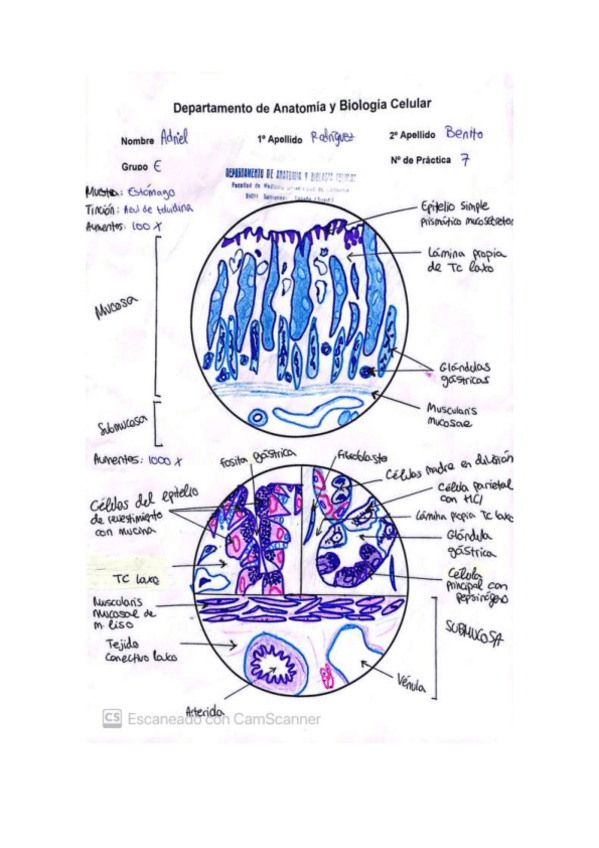 Departamento de Anatomía y Biología Celular
Nombre Adriel 1º Apellido Rodríguez 2º Apellido Benito
Grupo E Nº de Práctica 7
DEPARTAMENTO DE ANATOMIA Y BIOLOGIA CELULAR
Facultad de Medicina
Muestra: Estómago
Tinción: Azul de toluidina
Aumentos: 100 X
Epitelio simple
prismático mucosecretor
Lámina propia
de Tc laxo
Mucosa
Glándulas
gástricas
Muscularis
mucosae
Submucosa
Aumentos: 1000 X
Fosita gástrica
Fibroblasto
Células madre en división
Célula parietal
con HCl
Lámina propia Tc laxo
Glándula
gástrica
Célula
principal con
pepsinógeno
Células del epitelio
de revestimiento
con mucina
TC laxo
Muscularis
mucosae de
m. liso
Tejido
conectivo laxo
SUBMUCOSA
Vénula
Arteriola
CS Escaneado con CamScanner